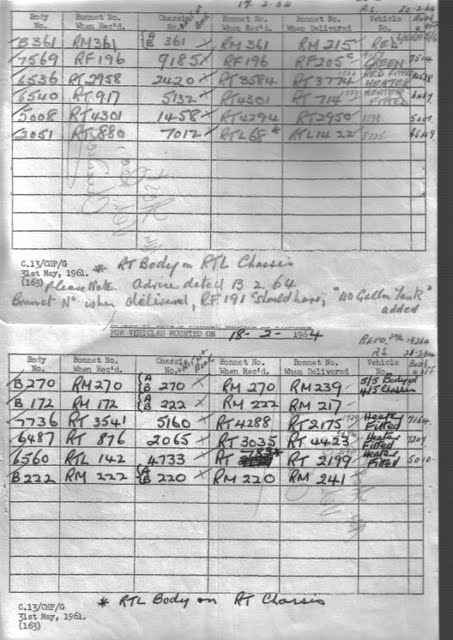 17. 2. 64
Body No. Bonnet No. When Rec'd. Chassis No. Bonnet No. When Delivered Vehicle No.
B361 RM361 A B 361 RM361 RM215 RED
7569 RF196 9185 RF196 RF205 GREEN 7544
6536 RT2958 2420 RT3584 RT3774 RED FITTED HEATER
6540 RT917 5132 RT4301 RT714 HEATER FITTED
5008 RT4301 1458 RT4294 RT2950
3051 RT880 7012 RTL68 * RTL1422
C.13/CHP/G
31st May, 1961.
(163)
* RT Body on RTL Chassis
Please Note. Advice dated 13. 2. 64
Bonnet No when delivered, RF191 should have, "40 Gallon Tank" added
FOR VEHICLES MOUNTED ON 18-2-1964
Body No. Bonnet No. When Rec'd. Chassis No. Bonnet No. When Delivered Vehicle No.
B270 RM270 A B 270 RM270 RM239 5/5 Body 4/5 Chassis
B172 RM172 A B 222 RM222 RM217
7736 RT3541 5160 RT4288 RT2175 Heater Fitted 7164
6487 RT876 2065 RT3035 RT4423 Heater Fitted 7204
6560 RTL142 4733 RT 783* RT2199 Heater Fitted
B222 RM222 A B 220 RM220 RM241
C.13/CHP/G
31st May, 1961.
(163)
* RTL Body on RT Chassis